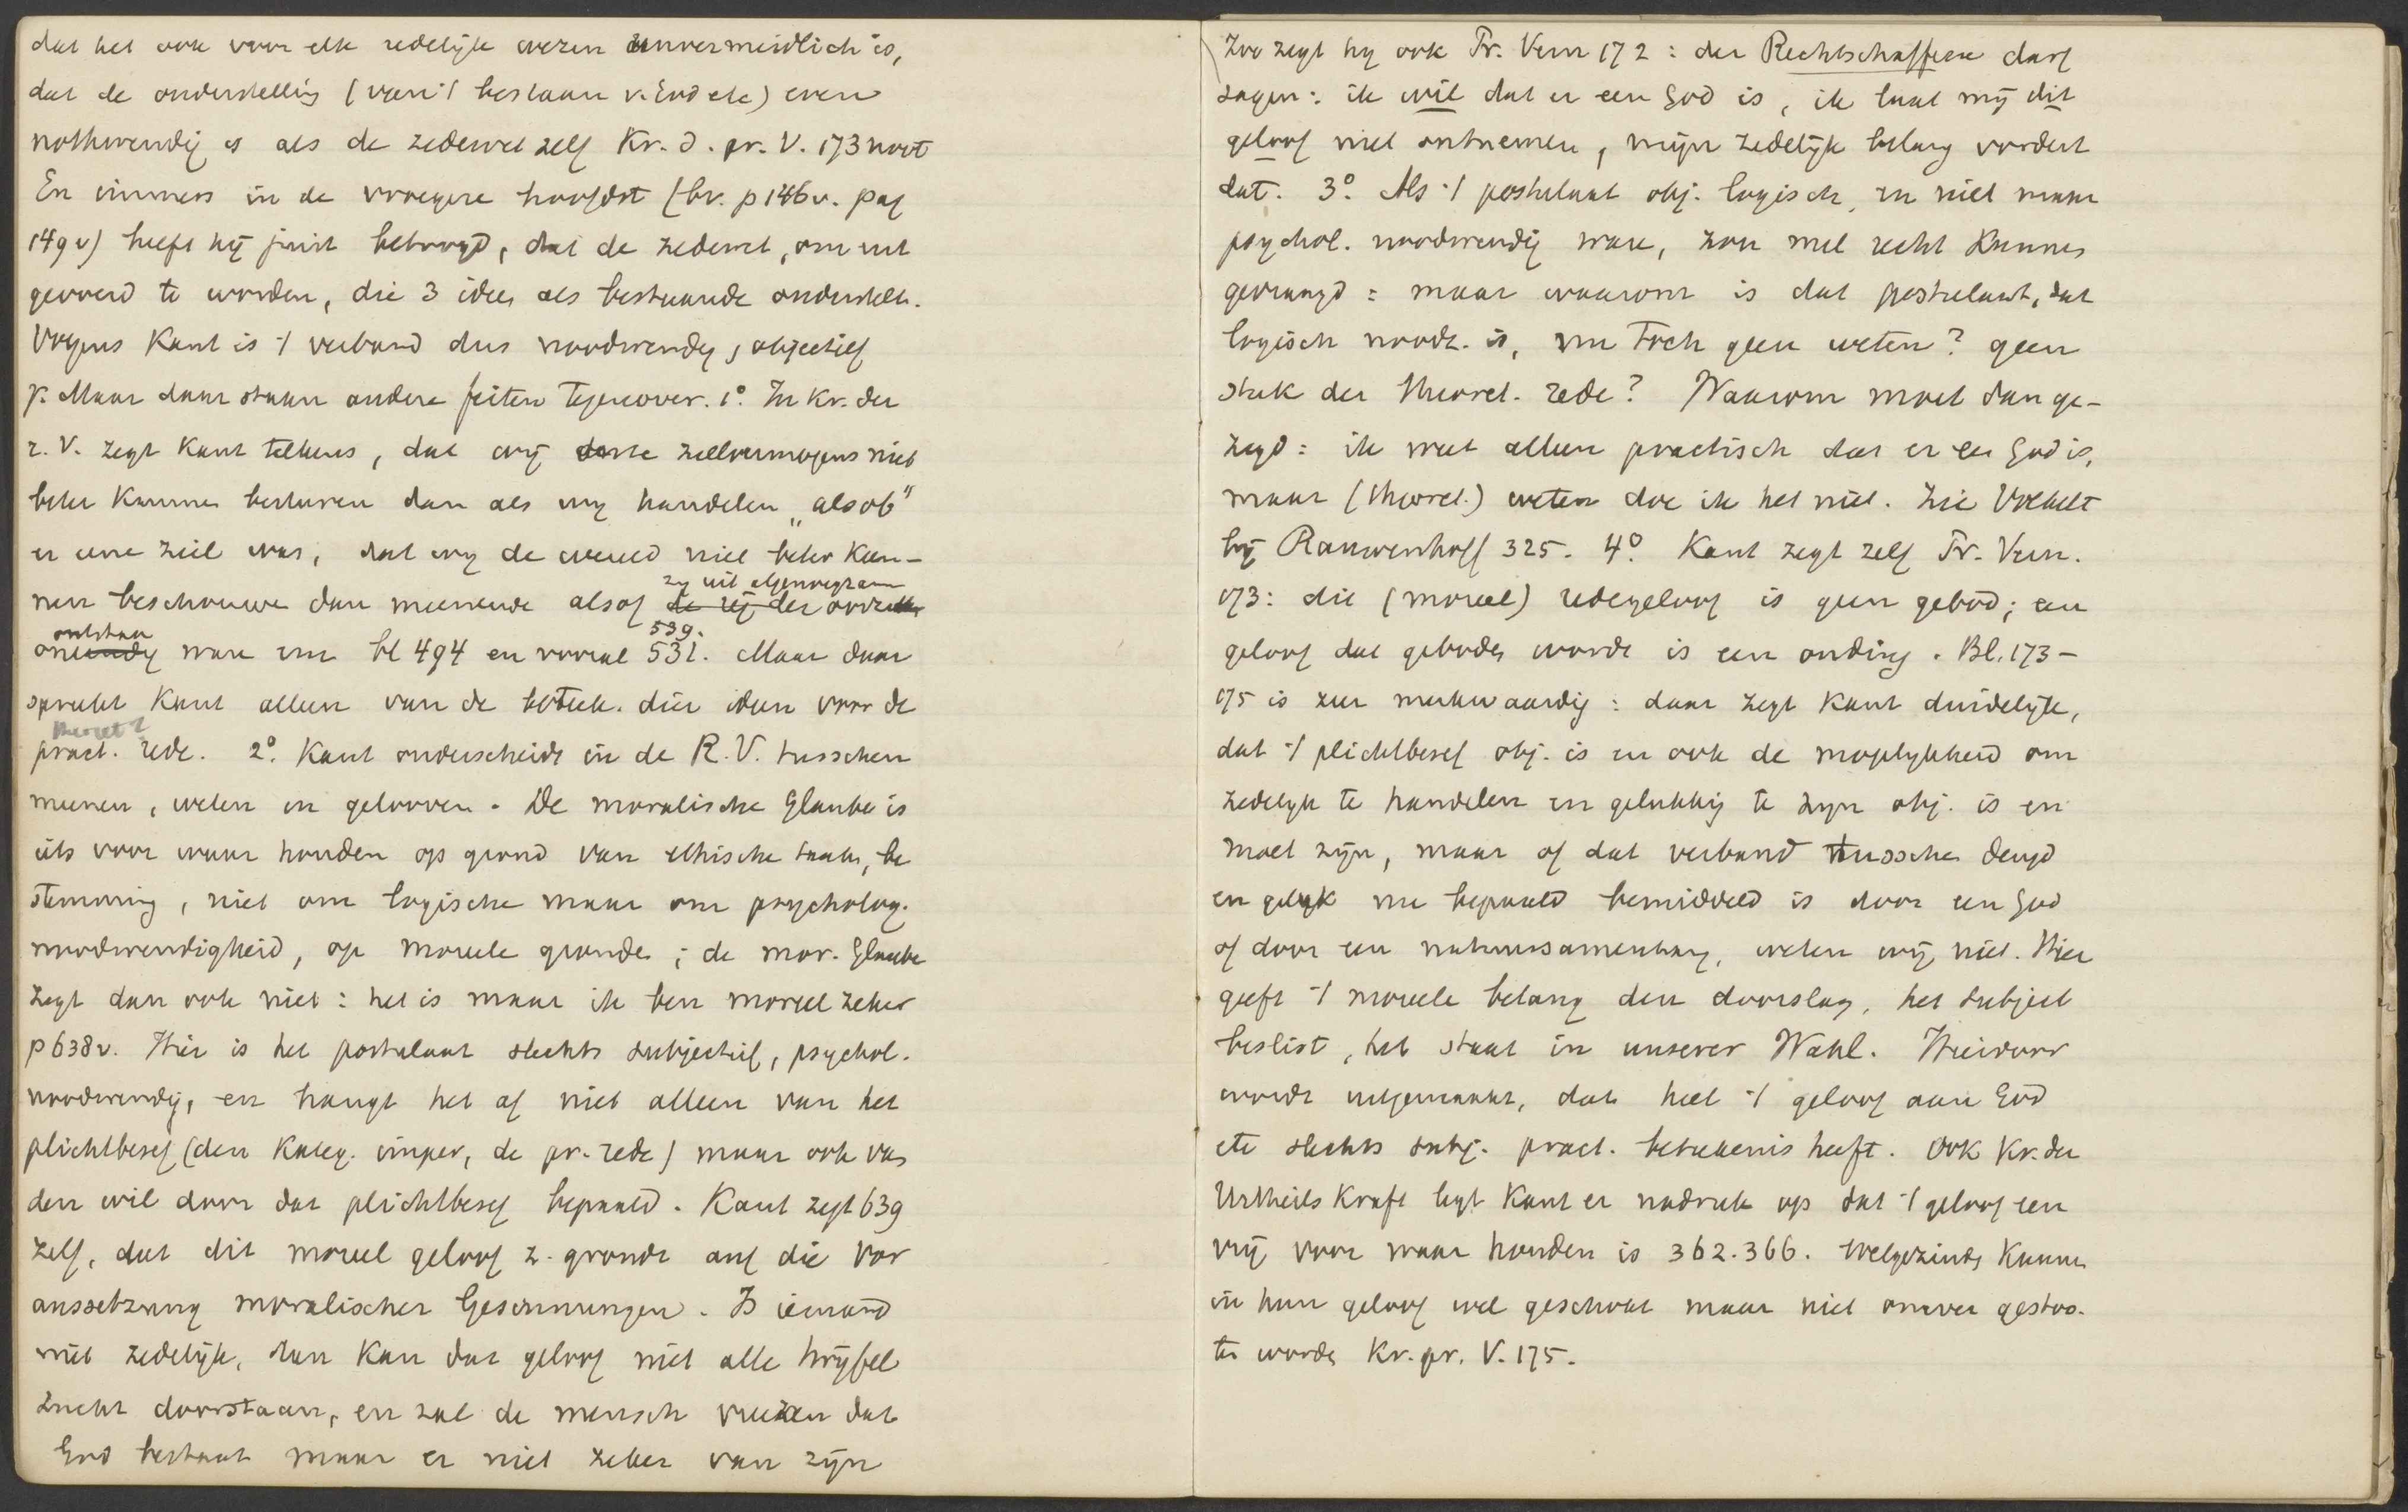 dat het ook voor elk redelijk wezen unvermeidlich is,
dat de onderstelling (van 't bestaan v. God etc) even
nothwendig is als de zedewet zelf Kr. d. pr. V. 173 noot
En immers in de vroegere hoofdst (bv. p 146 v. pag
149 v) heeft hij juist betoogd, dat de zedewet, om uit
gevoerd te worden, die 3 ideen als bestaande onderstelt.
Volgens Kant is 't verband dus noodwendig, objectief
Maar daar staan andere feiten tegenover. 1° In Kr. der
r. V. zegt Kant telkens, dat wij onze zielvermogens niet
beter kunnen besturen dan als wij handelen „alsof"
er eene ziel was, dat wij de wereld niet beter kun-
zij uit algenoegzaam
nen beschouwen dan meenende alsof de zij der
ontstaan 539.
ware enz bl 494 en vooral 531. Maar daar
spreekt Kant alleen van de beteek. dier ideen voor de
theoret?
pract. rede. 2° Kant onderscheidt in de R. V. tusschen
meenen, weten en gelooven. De moralische Glaube is
iets voor waar houden op grond van ethische taak, be
stemming, niet om logische maar om psycholog.
noodwendigheid, op moreele gronden; de mor. Glaube
zegt dan ook niet: het is maar ik ben moreel zeker
p 638 v. Hier is het postulaat slechts subjectief, psychol.
noodwendig, en hangt het af niet alleen van het
plichtbesef (den Kateg. imper, de pr. rede) maar ook van
den wil door dat plichtbesef bepaald. Kant zegt 639
zelf, dat dit moreel geloof z. grondt auf die Vor
aussetzung moralischer Gesinnungen. Is iemand
niet zedelijk, dan kan dat geloof niet alle twijfel
zucht doorstaan, en zal de mensch vreezen dat
God bestaat maar er niet zeker van zijn
Zoo zegt hij ook Pr. Vern 172: der Rechtschaffene darf
sagen: ik wil dat er een God is, ik laat mij dit
geloof niet ontnemen, mijn zedelijk belang vordert
dat. 3° Als 't postulaat obj. logisch, en niet maar
psychol. noodwendig ware, zou met recht kunnen
gevraagd: maar waarom is dat postulaat, dat
logisch noodz. is, nu toch geen weten? geen
stuk der theoret. rede? Waarom moet dan ge-
zegd: ik weet alleen practisch dat er een God is,
maar (theoret.) weten doe ik het niet. Zie Volkelt
bij Rauwenhoff 325. 4° Kant zegt zelf Pr. Vern.
173: dit (moreel) redegeloof is geen gebod; een
geloof dat geboden wordt is een onding. Bl. 173-
175 is zeer merkwaardig: daar zegt Kant duidelijk,
dat 't plichtbesef obj. is en ook de mogelijkheid om
zedelijk te handelen en gelukkig te zijn obj. is en
moet zijn, maar of dat verband tusschen deugd
en geluk nu bepaald bemiddeld is door een God
of door een natuursamenhang, weten wij niet. Hier
geeft 't moreele belang den doorslag, het subject
beslist, het staat in unserer Wahl. Hierdoor
wordt uitgemaakt, dat heel 't geloof aan God
etc slechts subj. pract. beteekenis heeft. Ook Kr. der
Urtheilskraft legt Kant er nadruk op dat 't geloof een
vrij voor waar houden is 362. 366. Welgezinden kunnen
in hun geloof wel geschokt maar niet omver gestoo-
ten worden Kr. pr. V. 175.